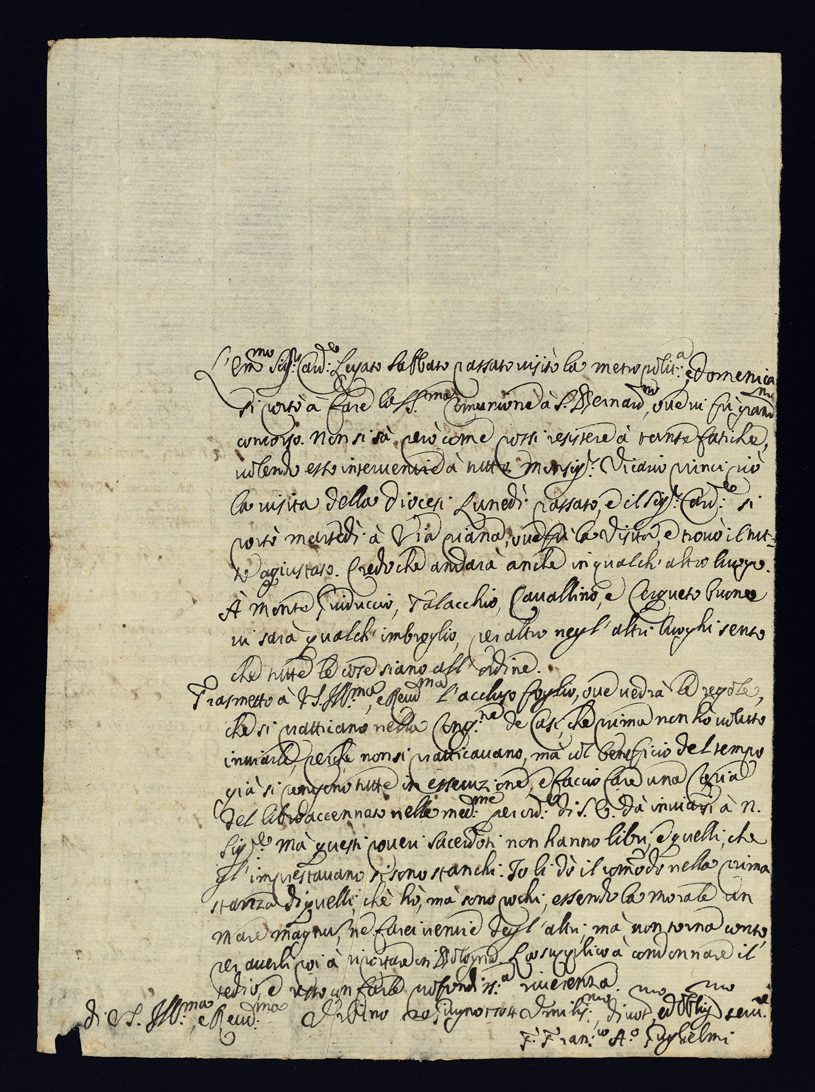 L'Em.mo Sig.r Card.le Legato Sabbato passato visitò la metropolit.a e domenica
si portò à fare la SS.ma Comunione à S. Bernard.no, ove vi fù gran.mo
concorso. Non si sà però come possi resistere à tante fatiche,
volendo esso intervenire à tutto. Monsig.r Vicario principiò
la visita della Diocesi Lunedì passato, e il Sig.r Card.le si
portò martedì à Via piana, ove fù la visita, e trovò il tut-
to agiustato. Credo che andarà anche in qualch' altro luogo.
À monte Guiduccio, Talacchio, Cavallino, e Cerqueto buono
vi sarà qualch' imbroglio, per altro negl' altri luoghi sento
che tutte le cose siano all' ordine.
Trasmetto à V.S. Ill.ma, e Reud.ma l'accluso foglio, ove vedrà le regole,
che si pratticano nella Cong.ne de Casi, che prima non hò voluto
inviarle, perche non si pratticavano, mà col beneficio del tempo
già si pongono tutte in essecuzione, e faccio fare una Copia
del libro accennato nelle med.me per ord.e di S.E. da inviarsi à N.
Sig.re mà questi poveri Sacerdoti non hanno libri, e quelli, che
gl' imprestavano si sono stanchi: Io li dò il comodo nella prima
stanza di quelli, che hò, mà sono pochi, essendo la morale un
mare magnu, ne farei venire degl' altri mà non torna conto
per averli poi à riportare in Bologna. La supplico à condonnare il
tedio, e resto in farle profondis.a riverenza.
di V.S. Ill.ma, e Reud.ma Urbino 20 Giugno 1704 Umilis.mo divot.mo ed Oblig.mo serv.e
F. Fran.co A.o Guglielmi